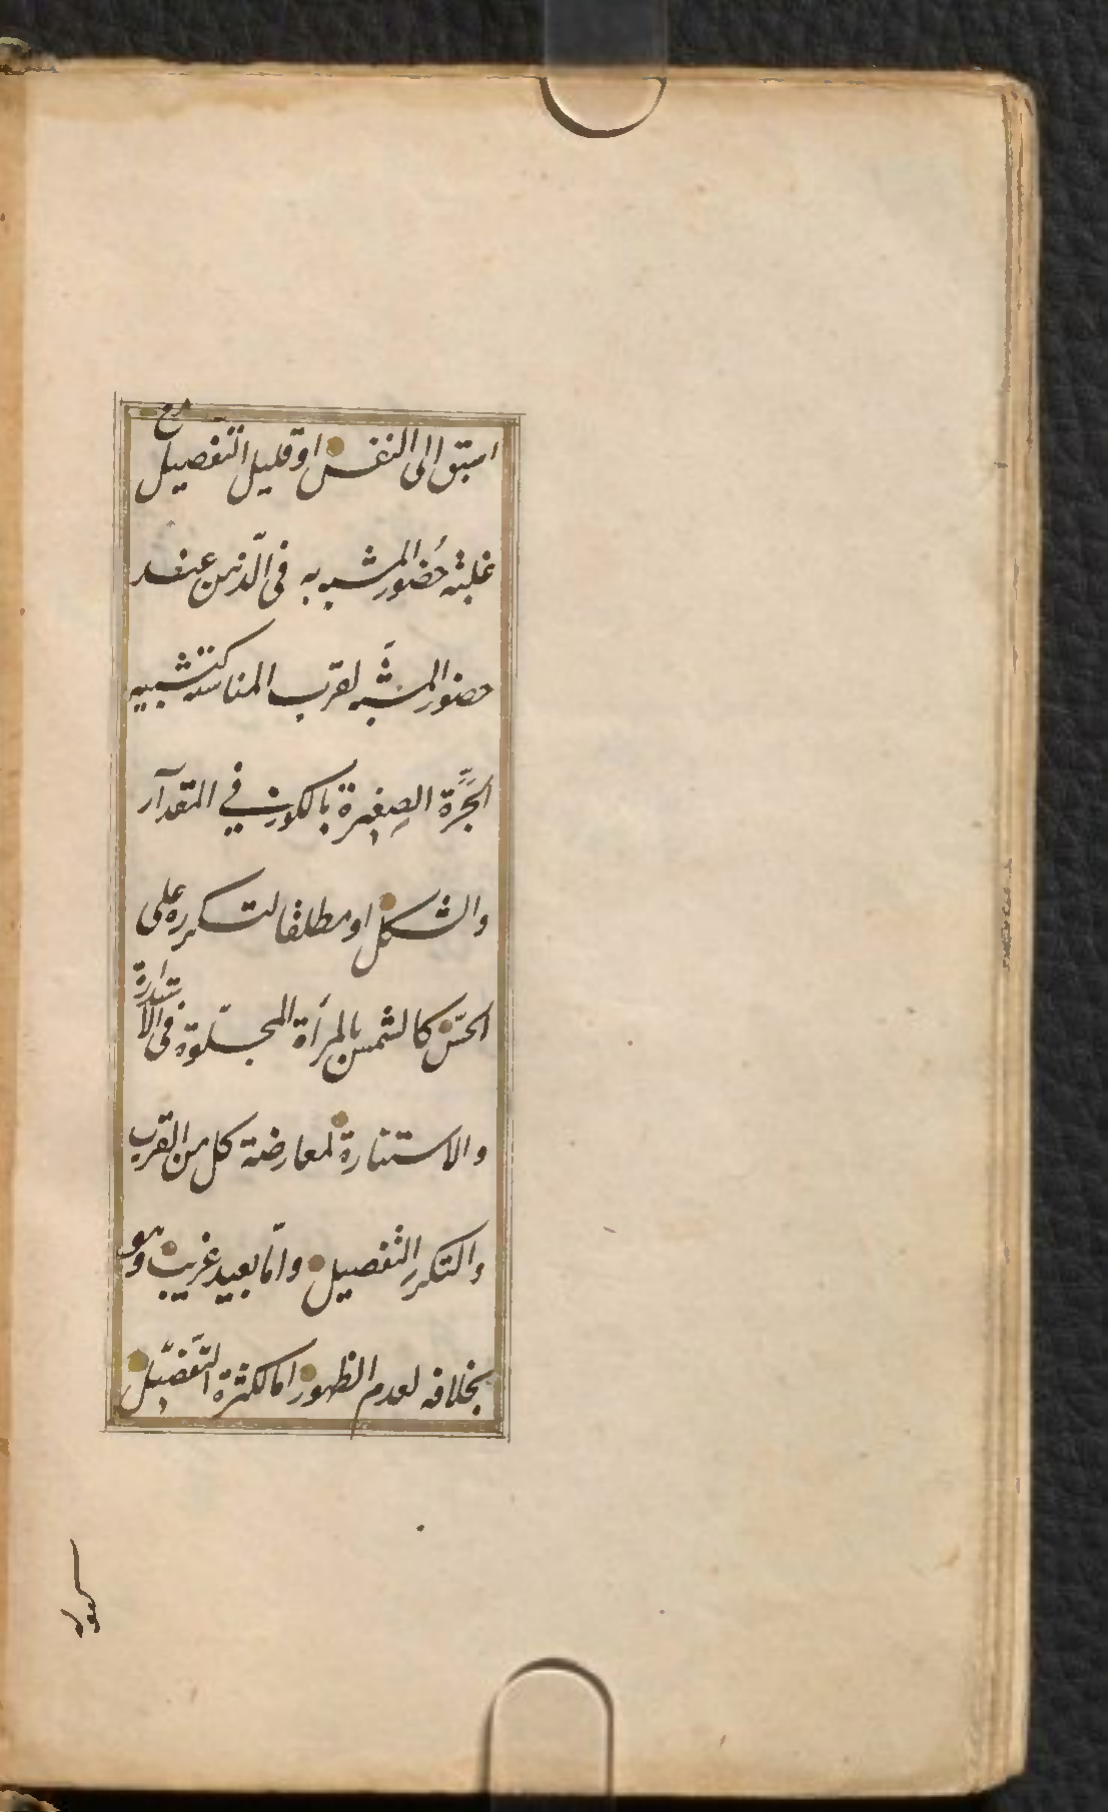 اسبق الى النفس او قليل التفصيل مع
غلبة حُضور المشبه به فى الذّهن عند
حضور المشبَّه لقرب المناسبة كتشبيه
الجرَّة الصِغيرة بالكوز في المقدار
والشكل او مطلقا لتكرره على
الحسّ كالشمس بالمرأة المجلوّة فى الاستدارة
والاستنارة لمعارضة كل من القرب
والتكرر التفصيل وامّا بعيد غريب وهو
بخلافه لعدم الظهور اما لكثرة التَفصّيل